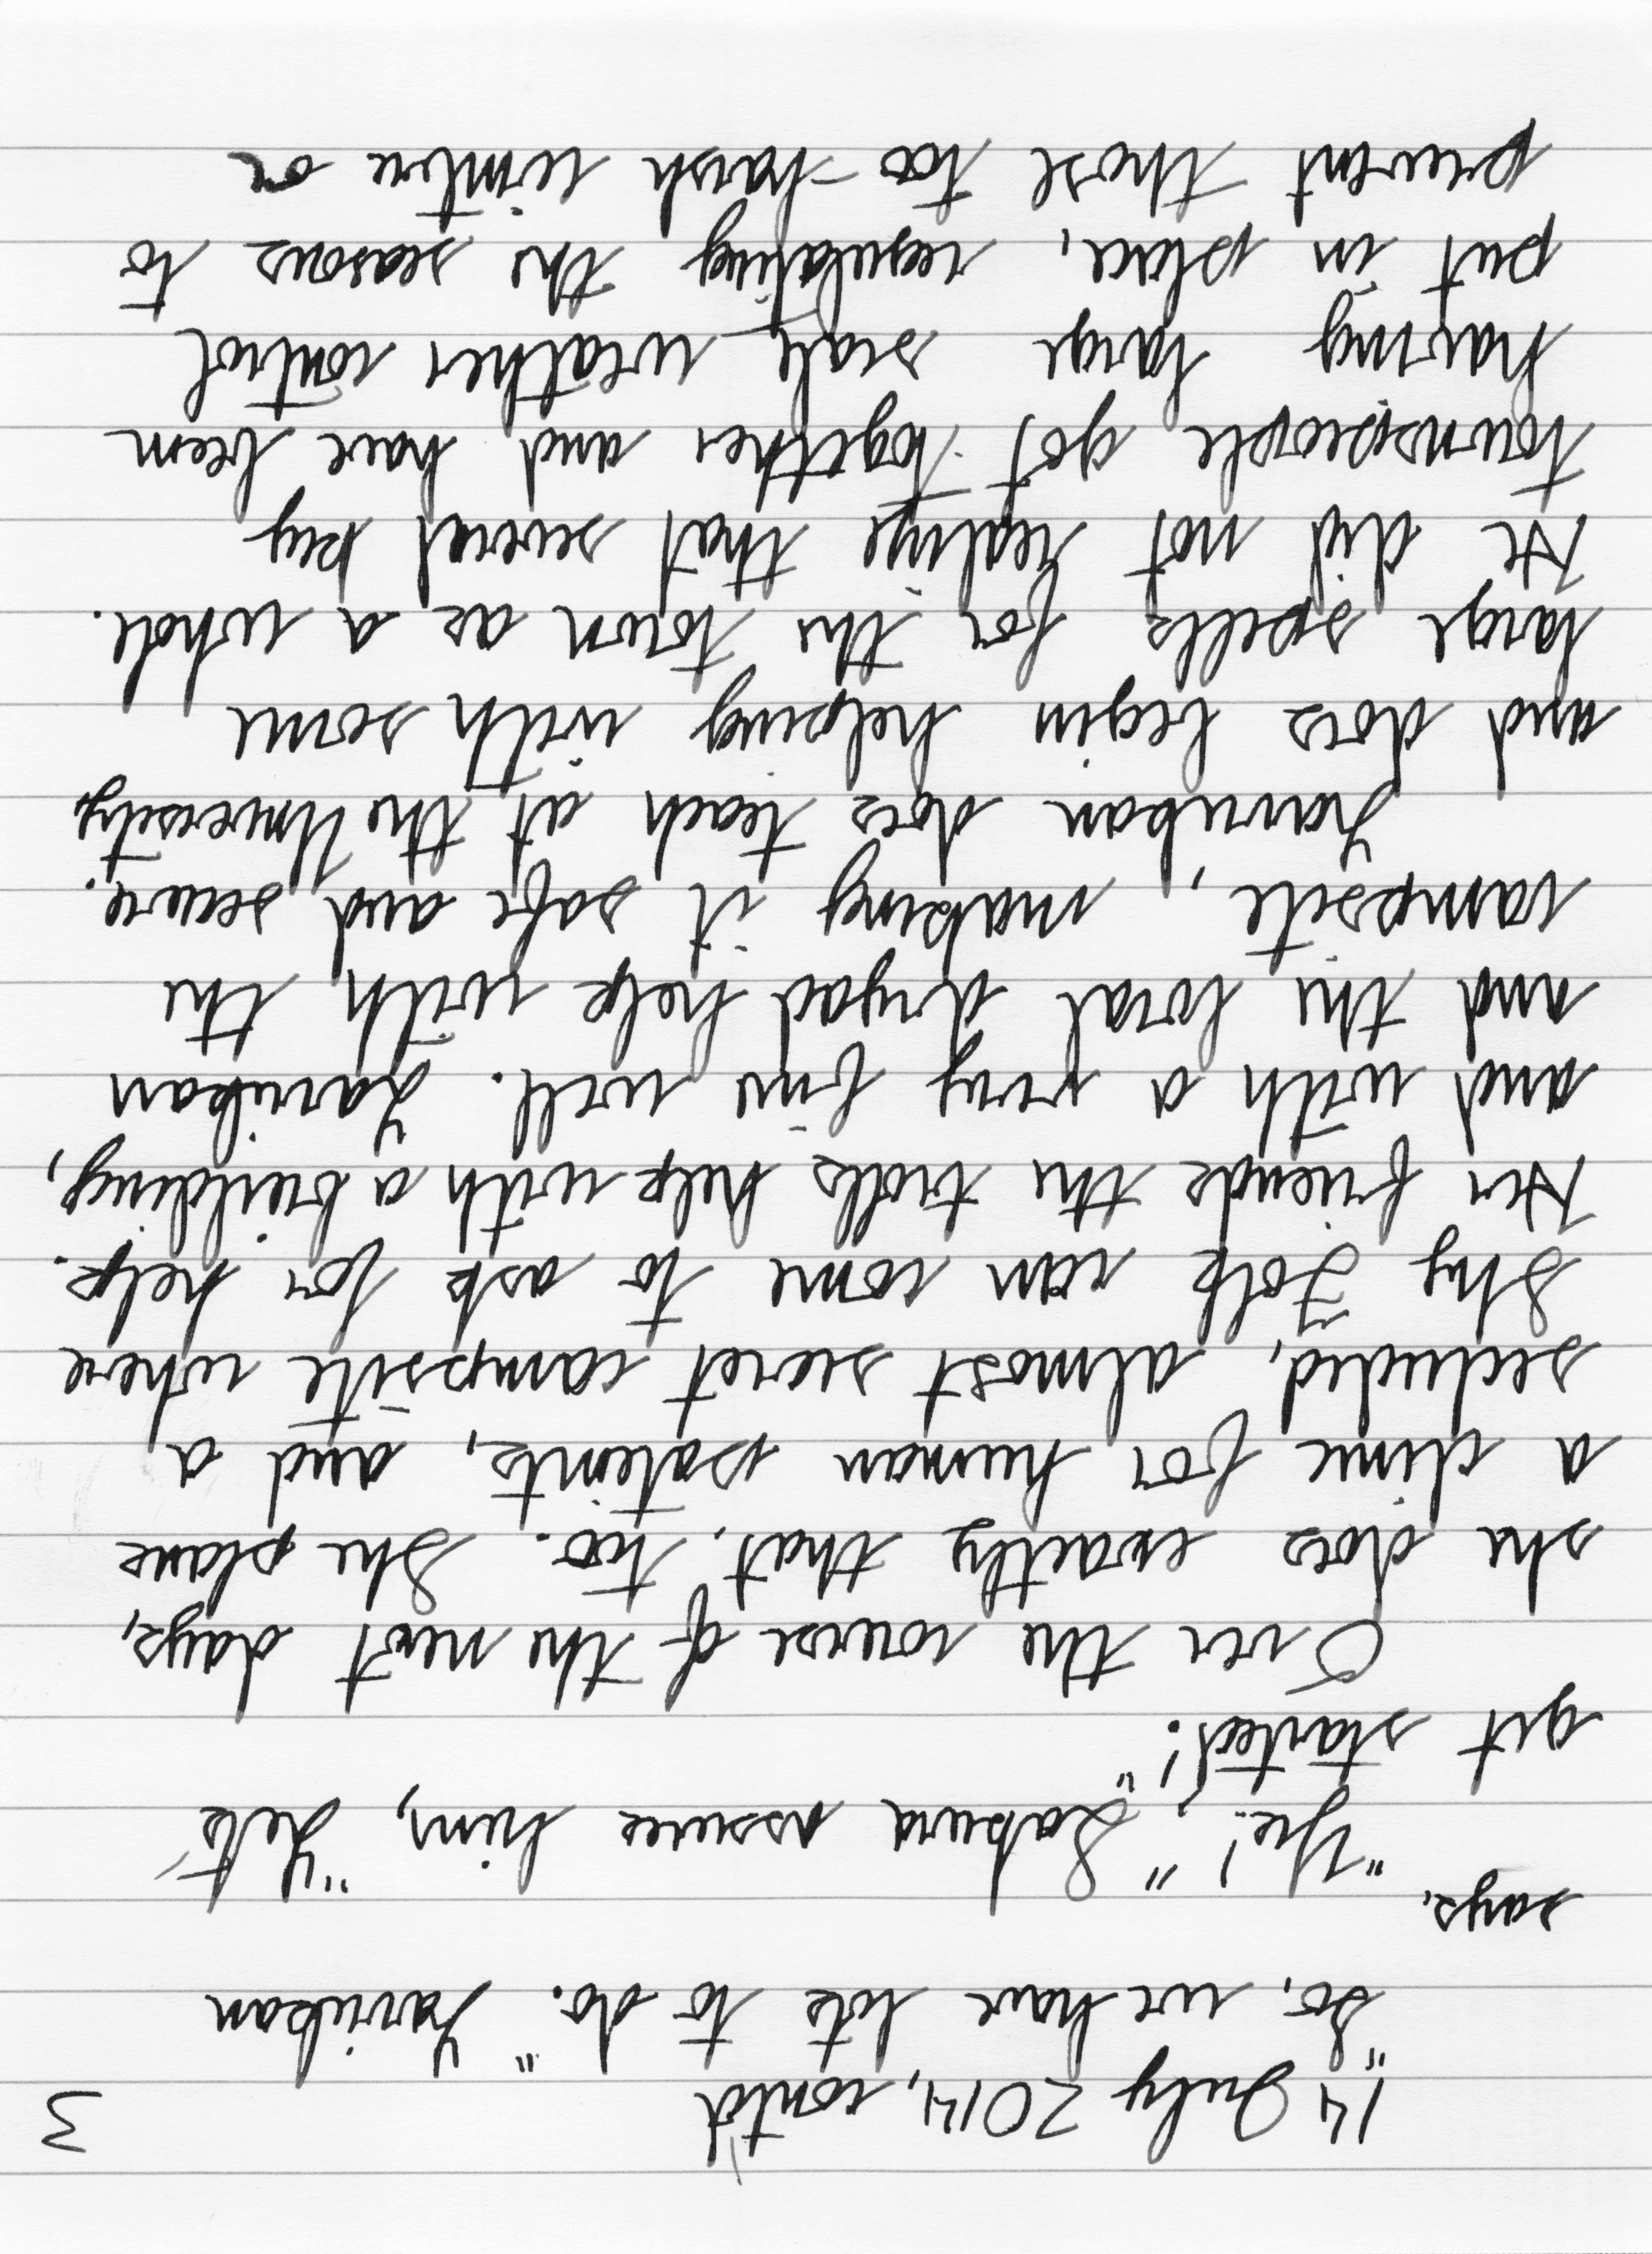 14 July 2014, cont'd 3
"So, we have lots to do." Zarukan
says.
"Yes!" Sakura assures him, "Lets
get started!"
Over the course of the next days,
she does exactly that, too. She plans
a clinic for human patients, and a
secluded, almost secret campsite where
Shy Folk can come to ask for help.
Her friends the trolls help with a building,
and with a very fine well. Zarukan
and the local dryad help with the
campsite, making it safe and secure.
Zarukan does teach at the University,
and does begin helping with some
large spells for the town as a whole.
He did not realize that several key
townspeople got together and have been
having large scale weather control
put in place, regulating the seasons to
prevent those too-harsh winters or